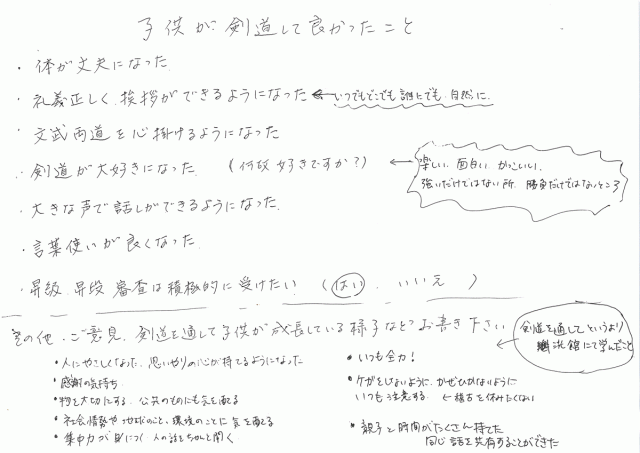 子供が剣道して良かったこと
・体が丈夫になった
・礼義正しく挨拶ができるようになった ← いつでもどこでも誰にでも自然に
・文武両道を心掛けるようになった
・剣道が大好きになった (何故好きですか?) ← 楽しい 面白い かっこいい、
強いだけではない所 勝負だけではないところ
・大きな声で話しができるようになった
・言葉使いが良くなった
・昇級、昇段審査は積極的に受けたい (はい . いいえ )
その他、ご意見、剣道を通して子供が成長している様子などお書き下さい
← 剣道を通してというより
洗館にて学んだこと
・人にやさしくなった、思いやりの心が持てるようになった
・感謝の気持ち
・物を大切にする、公共のものにも気を配る
・社会情勢や地球のこと、環境のことに気を配る
・集中力が身につく 人の話をちゃんと聞く
・いつも全力!
・ケガをしないように、かぜひかないように
いつも注意する。 ← 稽古を休みたくない
・親子と時間がたくさん持てた
同じ話を共有することができた